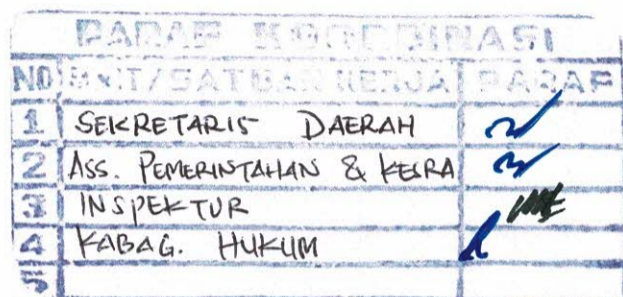 PARAF KOORDINASI
NO UNIT/SATUAN KERJA PARAF
1 SEKRETARIS DAERAH
2 ASS. PEMERINTAHAN & KESRA
3 INSPEKTUR
4 KABAG. HUKUM
5